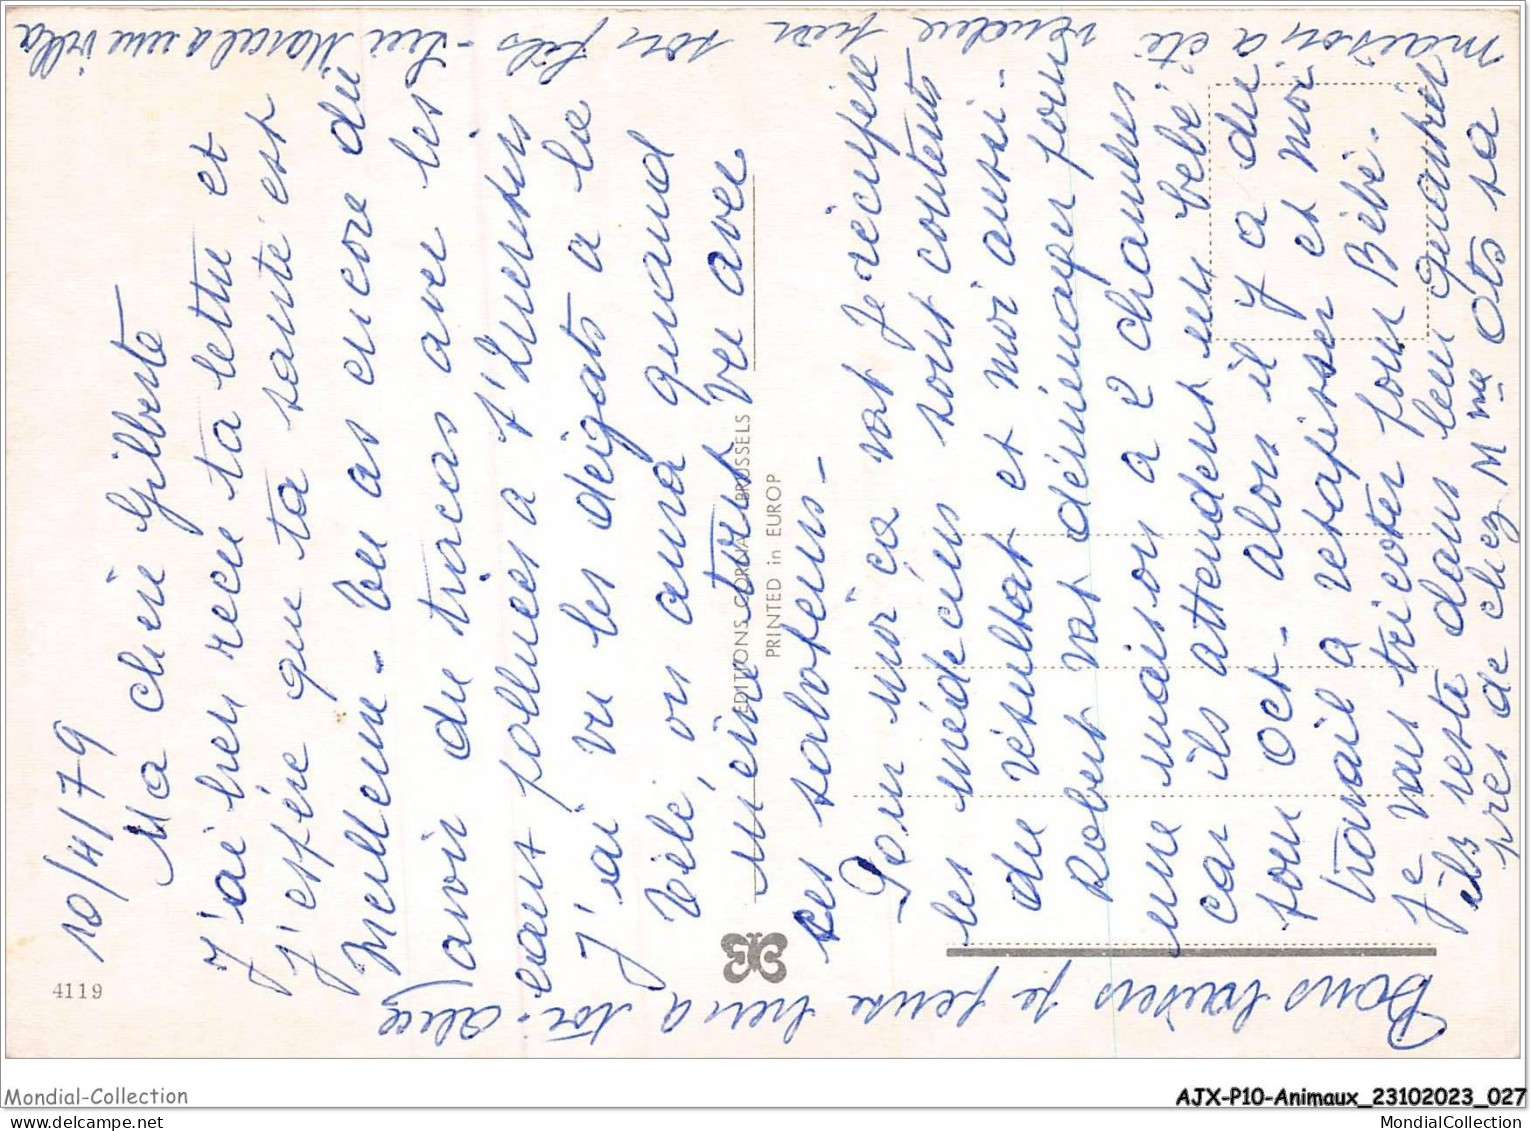 10/4/79
Ma chère Gilberte
J'ai bien recu ta lettre et
J'espére que ta santé est
Meilleure - tu as encore du
avoir du tracas avec les
eaux polluees a l'
J'ai vu les dégats a la
télé, on aura quand
meme tout vu avec
ces saloperies -
Pour moi ca vat Je récupère
les médecins sont contents
du résultat et moi aussi -
Robert vat déménager pour
une maison a 2 chambres
car ils attendent un bébé
pour Oct - alors il y a du
travail a retapisser et moi
Je vais tricoter pour Bébé.
ils reste dans leur quartier
près de chez Mme Ots sa
maison a été vendue par son fils - lui Marcel a une villa
Bons baisers je pense bien a toi - Alice
4119
EDITIONS CORNA BRUSSELS
PRINTED in EUROP
Mondial-Collection
AJX-P10-Animaux_23102023_027
www.delcampe.net
MondialCollection